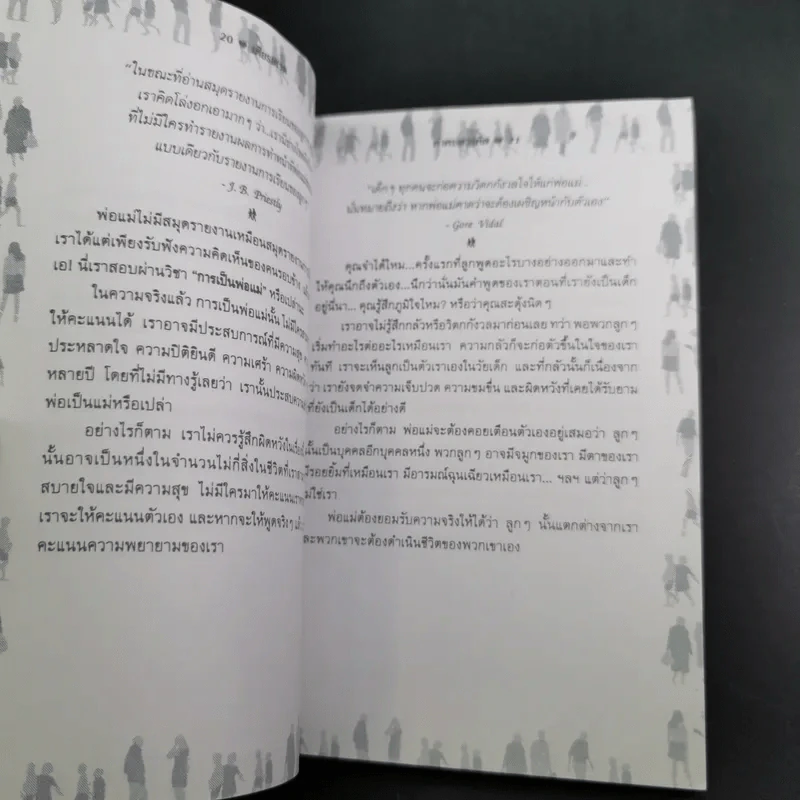 20
"ในขณะที่อ่านสมุดรายงานการเรียนของลูก
เราคิดโล่งอกเอามากๆ ว่า...เรานี่ช่าง
ที่ไม่มีใครทำรายงานผลการทำหน้าที่
แบบเดียวกับรายงานการเรียนของลูก
- J. B. Priestly
พ่อแม่ไม่มีสมุดรายงานเหมือนสมุดรายงาน
เราได้แต่เพียงรับฟังความคิดเห็นของคนรอบข้าง
เอ! นี่เราสอบผ่านวิชา "การเป็นพ่อแม่" หรือเปล่านะ
ในความจริงแล้ว การเป็นพ่อแม่นั้น ไม่มีใคร
ให้คะแนนได้ เราอาจมีประสบการณ์ที่มีความสุข
ประหลาดใจ ความปิติยินดี ความเศร้า ความผิดหวัง
หลายปี โดยที่ไม่มีทางรู้เลยว่า เรานั้นประสบความ
พ่อเป็นแม่หรือเปล่า
อย่างไรก็ตาม เราไม่ควรรู้สึกผิดหวังในเรื่อง
นั้นอาจเป็นหนึ่งในจำนวนไม่กี่สิ่งในชีวิตที่เรา
สบายใจและมีความสุข ไม่มีใครมาให้คะแนนเรา
เราจะให้คะแนนตัวเอง และหากจะให้พูดจริงๆ
คะแนนความพยายามของเรา
"เด็กๆ ทุกคนจะก่อความวิตกกังวลใจให้แก่พ่อแม่
นั่นหมายถึงว่า หากพ่อแม่คาดว่าจะต้องเผชิญหน้ากับตัวเอง"
- Gore Vidal
คุณจำได้ไหม...ครั้งแรกที่ลูกพูดอะไรบางอย่างออกมาและทำ
ให้คุณนึกถึงตัวเอง...นึกว่านั่นมันคำพูดของเราตอนที่เรายังเป็นเด็ก
อยู่นี่นา... คุณรู้สึกภูมิใจไหม? หรือว่าคุณสะดุ้งนิดๆ
เราอาจไม่รู้สึกกลัวหรือวิตกกังวลมาก่อนเลย ทว่า พอพวกลูกๆ
เริ่มทำอะไรต่ออะไรเหมือนเรา ความกลัวก็จะก่อตัวขึ้นในใจของเรา
ทันที เราจะเห็นลูกเป็นตัวเราเองในวัยเด็ก และที่กลัวนั้นก็เนื่องจาก
ว่า เรายังจดจำความเจ็บปวด ความขมขื่น และผิดหวังที่เคยได้รับยาม
ที่ยังเป็นเด็กได้อย่างดี
อย่างไรก็ตาม พ่อแม่จะต้องคอยเตือนตัวเองอยู่เสมอว่า ลูกๆ
นั้นเป็นบุคคลอีกบุคคลหนึ่ง พวกลูกๆ อาจมีจมูกของเรา มีตาของเรา
มีรอยยิ้มที่เหมือนเรา มีอารมณ์ฉุนเฉียวเหมือนเรา... ฯลฯ แต่ว่าลูกๆ
ไม่ใช่เรา
พ่อแม่ต้องยอมรับความจริงให้ได้ว่า ลูกๆ นั้นแตกต่างจากเรา
และพวกเขาจะต้องดำเนินชีวิตของพวกเขาเอง